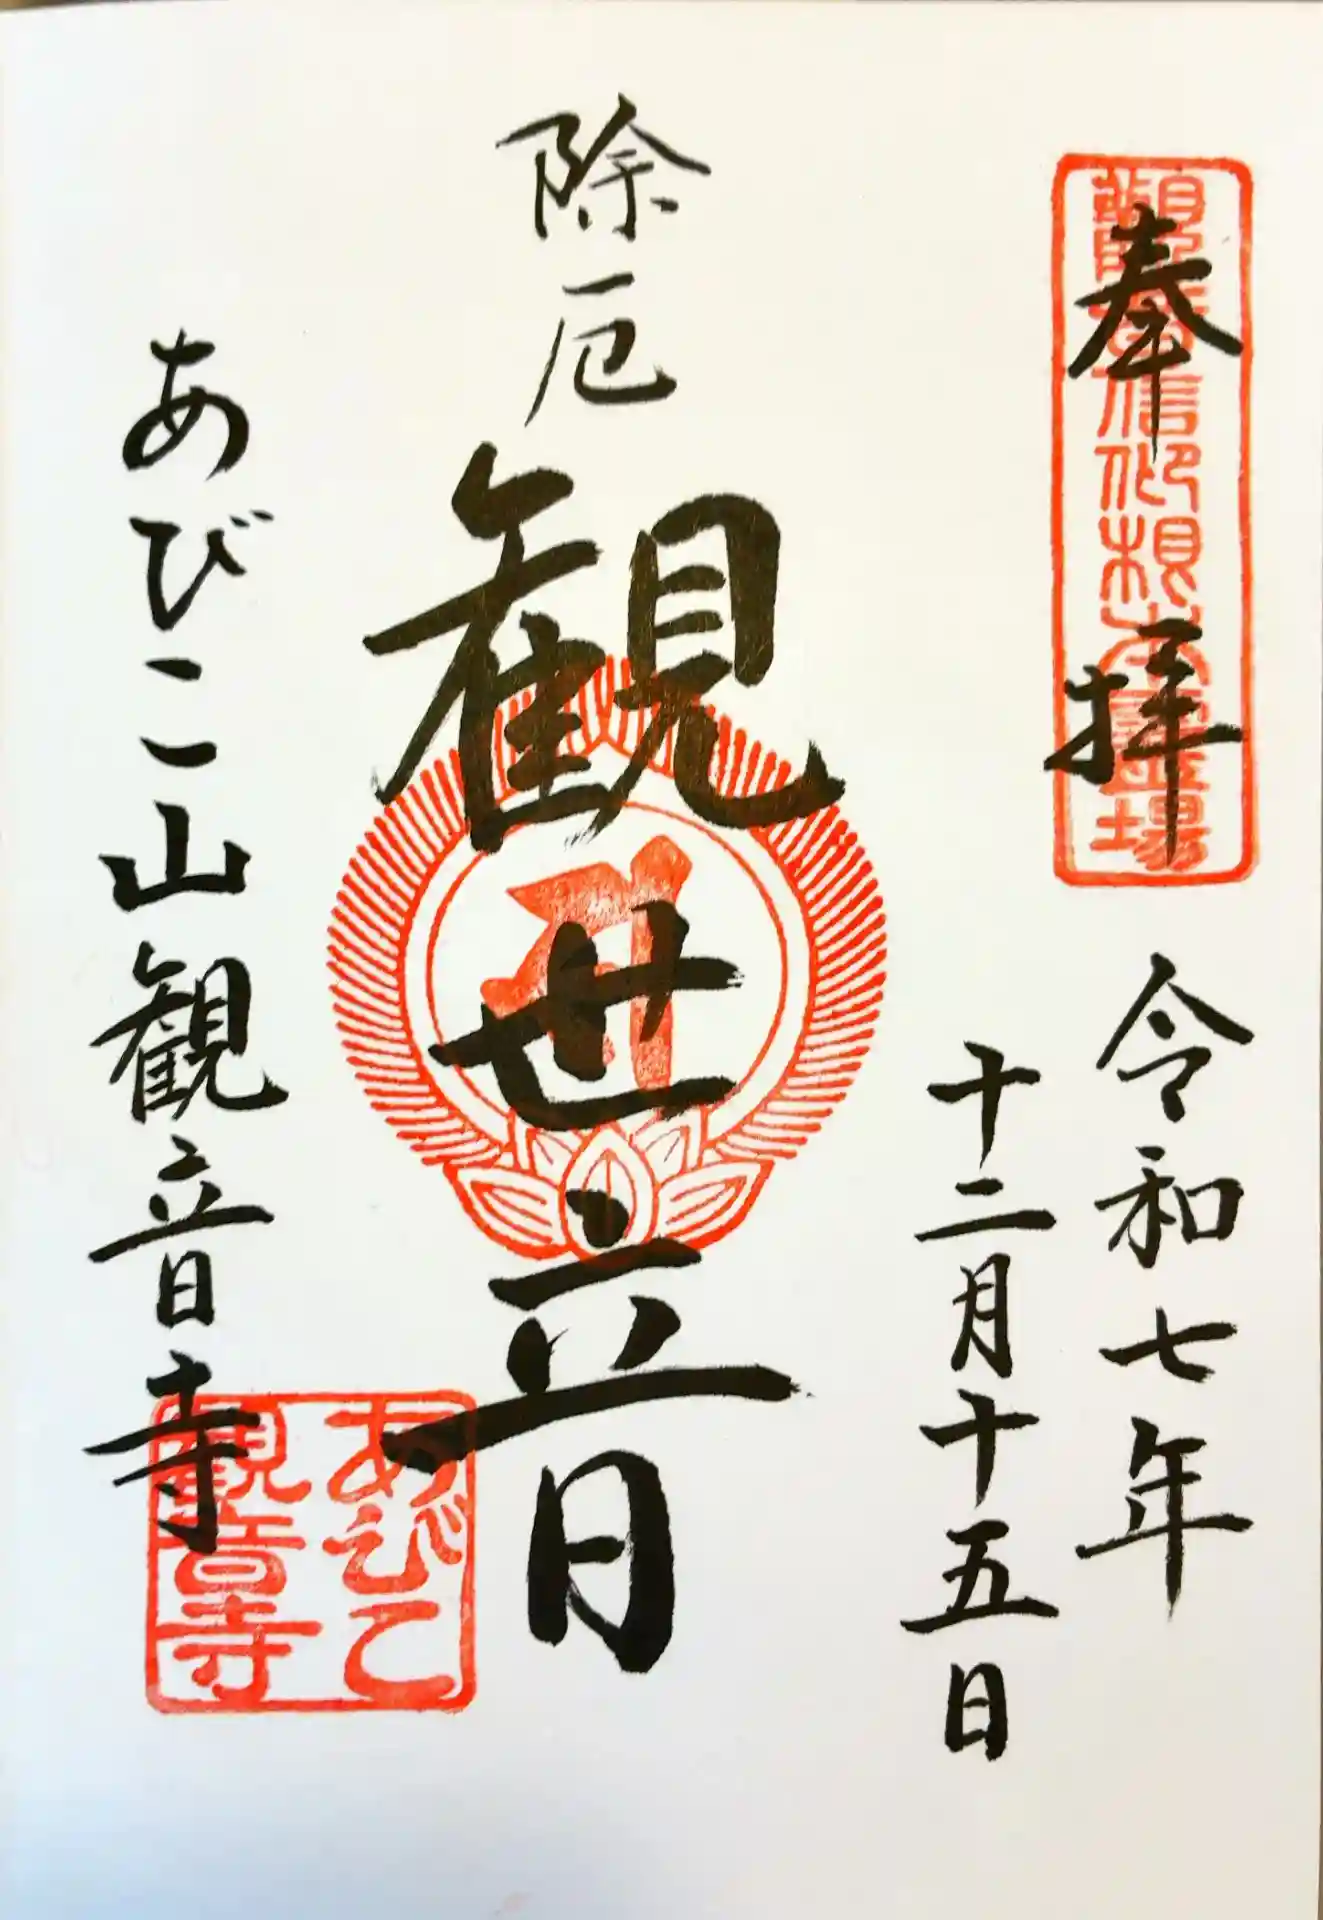 奉拝
観音信仰根本霊場
令和七年
十二月十五日
除厄
観世音
あびこ山観音寺
あびこ
観音寺